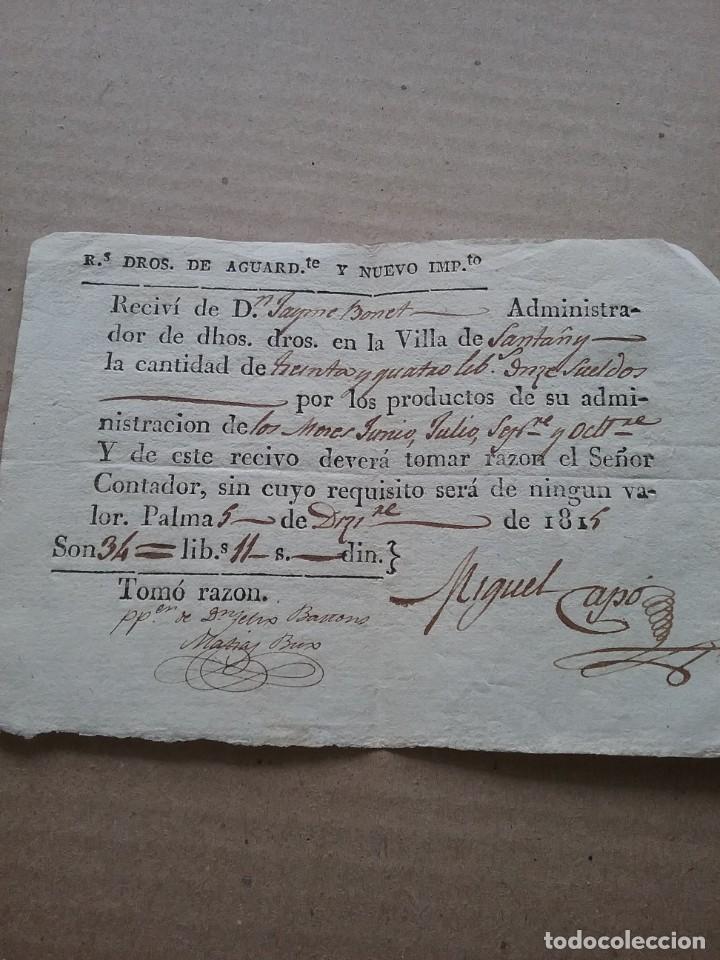 R.s DROS. DE AGUARD.te Y NUEVO IMP.to
Reciví de D.n Jayme Bonet Administra-
dor de dhos. dros. en la Villa de Santañy
la cantidad de treinta y quatro lib.s Onze Sueldos
por los productos de su admi-
nistracion de los Meses Junio, Julio, Sep.re y Oct.re
Y de este recivo deverá tomar razon el Señor
Contador, sin cuyo requisito será de ningun va-
lor. Palma 5 de Dizi.re de 1815
Son 34 = lib.s 11 s. din.}
Tomó razon.
Miguel Capó
pp.en de Dn
Matias
todocoleccion